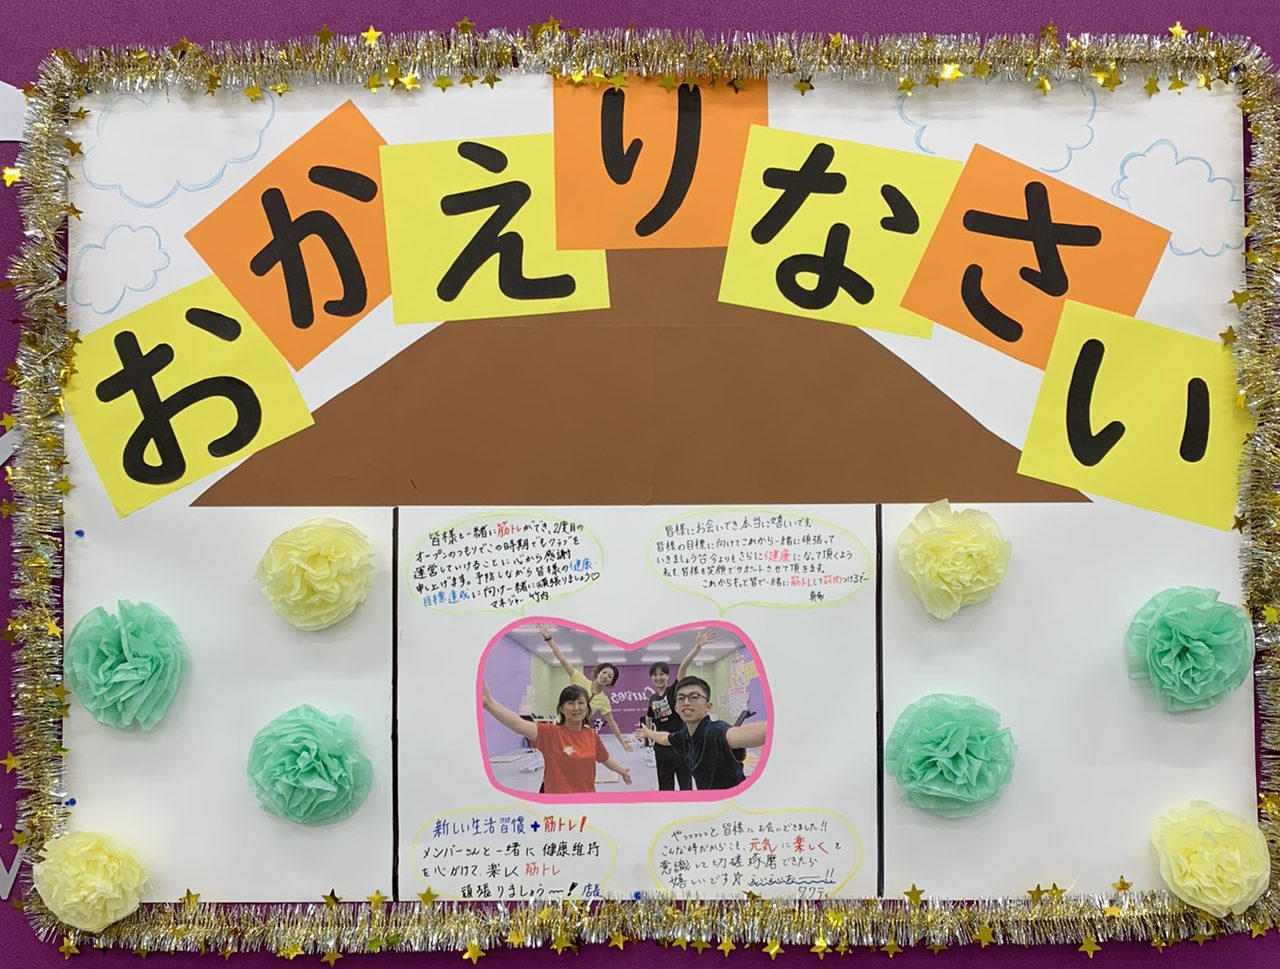 おかえりなさい
皆様と一緒に筋トレができ、2度目の
オープンのつもりでこの時期でもクラブを
運営していけることに心から感謝
申し上げます。予防しながら皆様の健康・
目標達成に向け一緒に頑張りましょう♡
マネジャー 竹内
皆様にお会いでき本当に嬉しいです。
皆様の目標に向けてこれから一緒に頑張って
いきましょう!今よりもさらに健康になって頂くよう
私も皆様を笑顔でサポートさせて頂きます。
これからもっと皆で一緒に筋トレして筋肉つけるぞー
Curves
新しい生活習慣+筋トレ!
メンバーさんと一緒に健康維持
を心がけて、楽しく筋トレ
頑張りましょう〜! 店長
やっっっっっと皆様にお会いできました!!
こんな時だからこそ、元気に楽しくを
意識して切磋琢磨できたら
嬉しいです☆